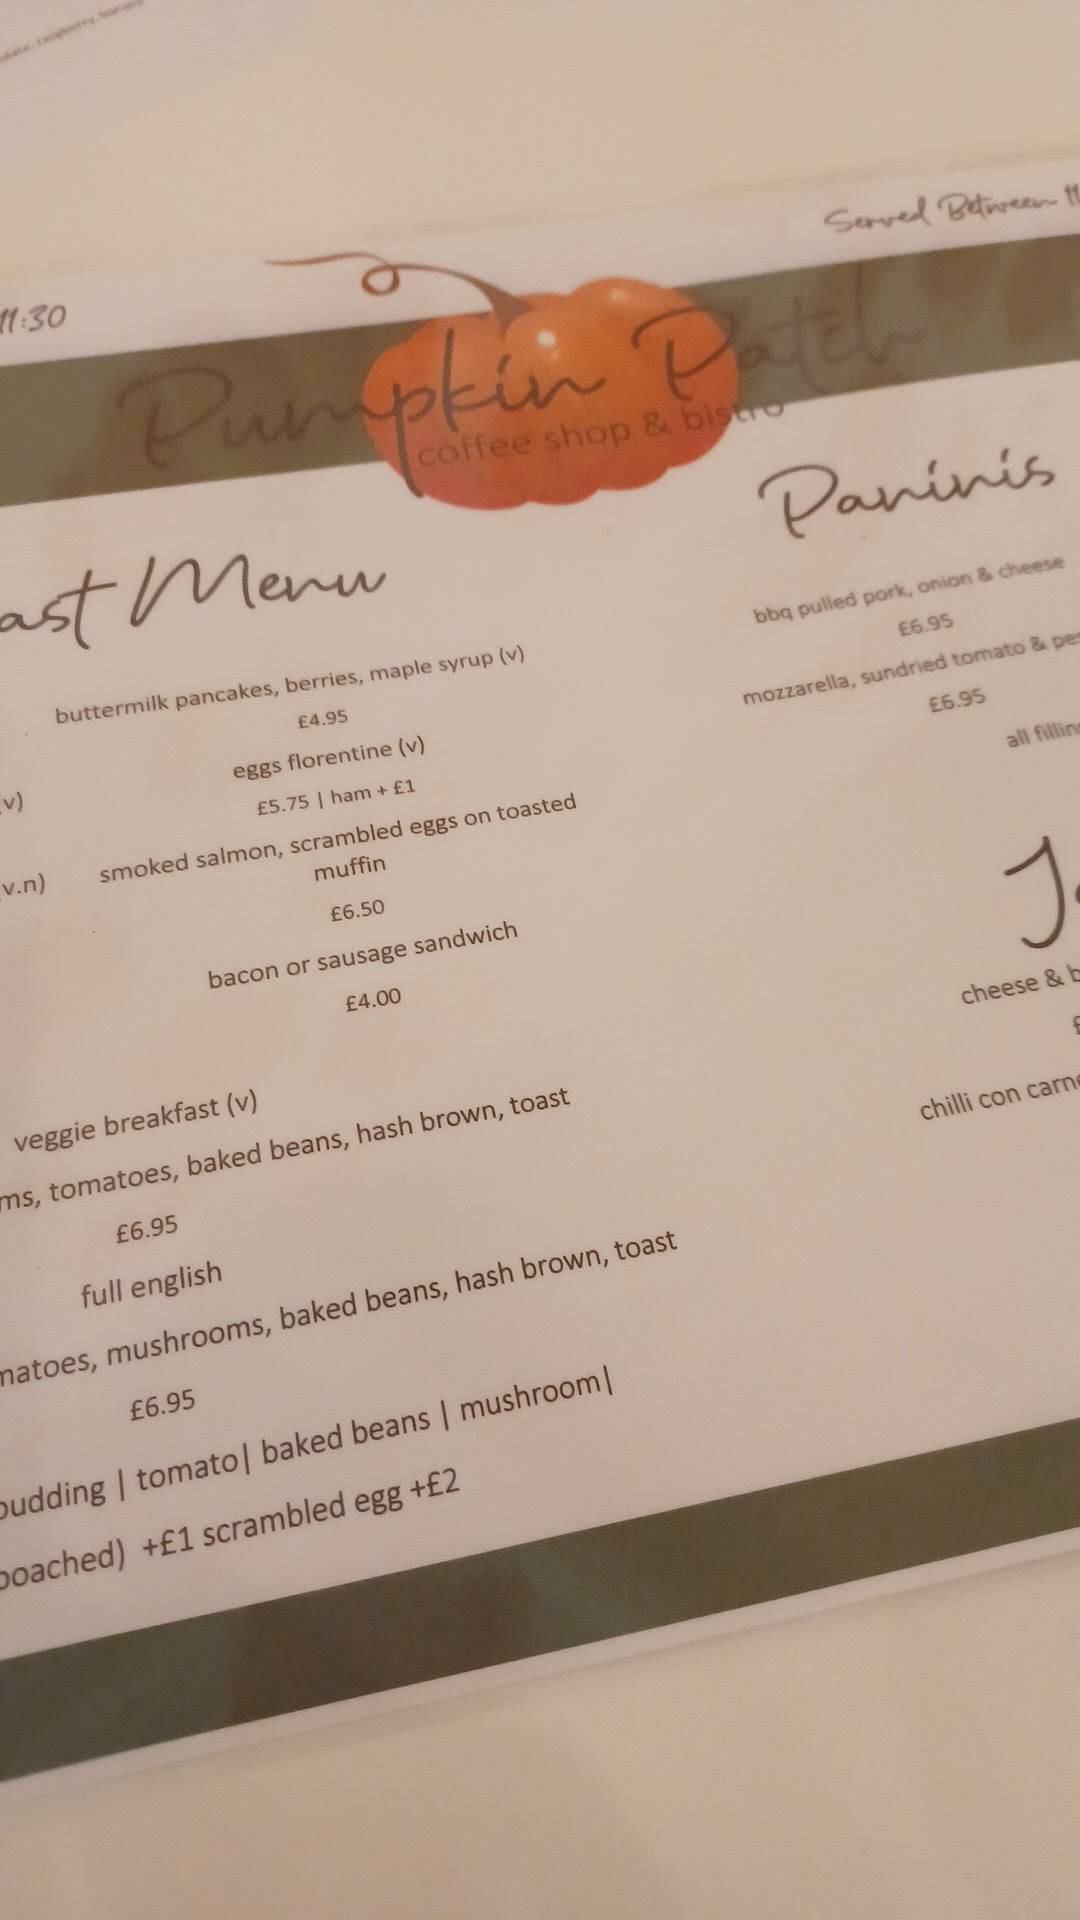 raspberry, banana
Served Between
11:30
Pumpkin Patch
coffee shop & bistro
Menu
buttermilk pancakes, berries, maple syrup (v)
£4.95
eggs florentine (v)
£5.75 | ham + £1
smoked salmon, scrambled eggs on toasted
muffin
£6.50
bacon or sausage sandwich
£4.00
(v)
(v.n)
veggie breakfast (v)
tomatoes, baked beans, hash brown, toast
£6.95
full english
mushrooms, baked beans, hash brown, toast
£6.95
pudding | tomato| baked beans | mushroom|
poached) +£1 scrambled egg +£2
Paninis
bbq pulled pork, onion & cheese
£6.95
mozzarella, sundried tomato &
£6.95
all
cheese &
chilli con